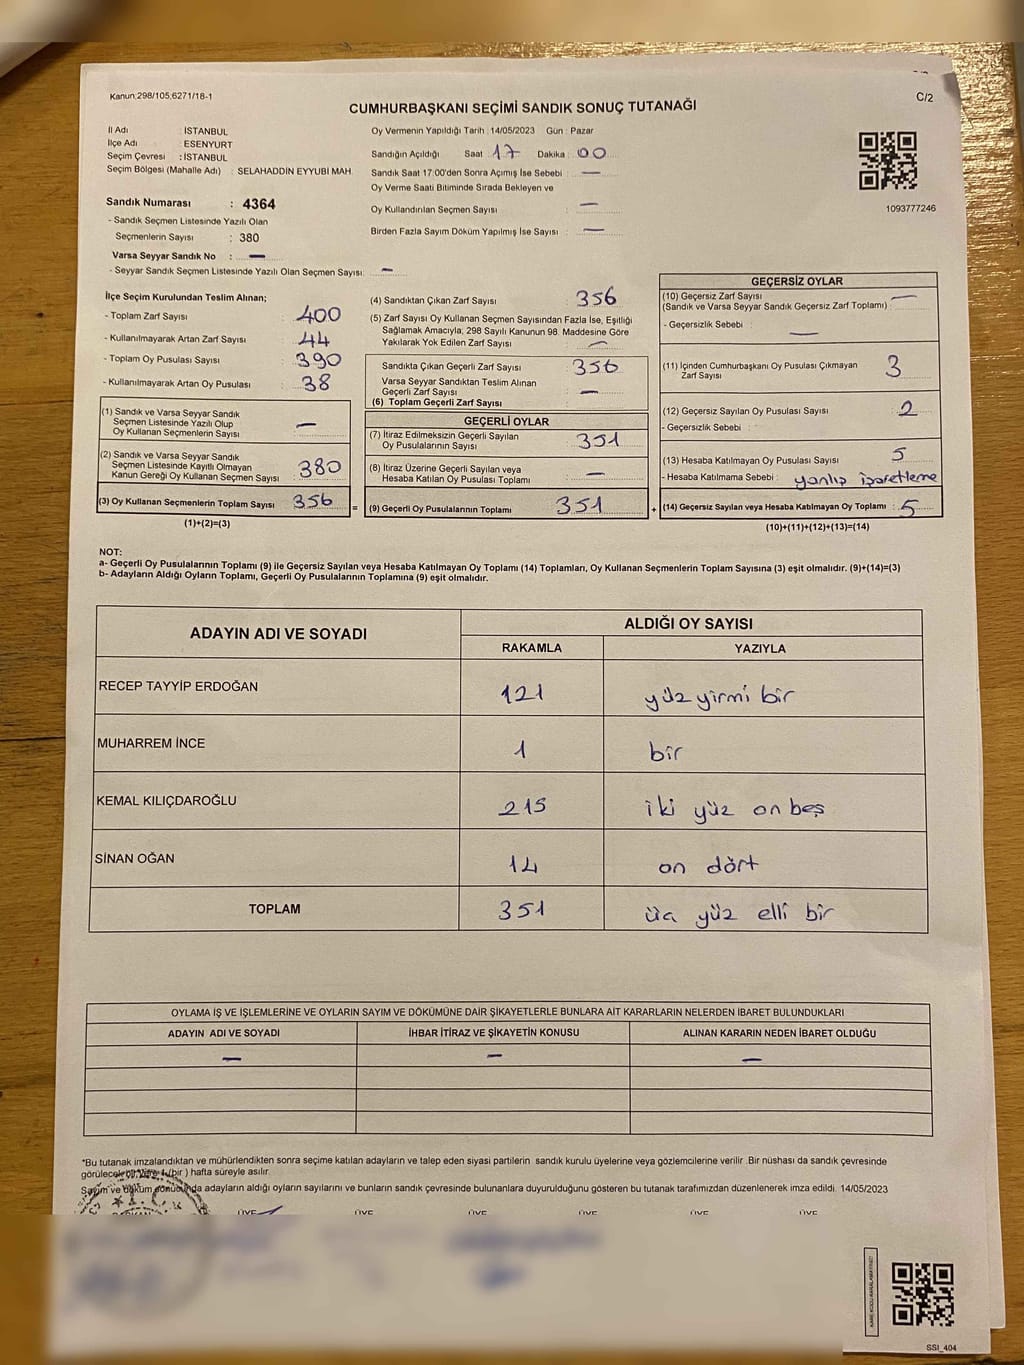 Kanun:298/105,6271/18-1
C/2
CUMHURBAŞKANI SEÇİMİ SANDIK SONUÇ TUTANAĞI
İl Adı : İSTANBUL
İlçe Adı : ESENYURT
Seçim Çevresi : İSTANBUL
Seçim Bölgesi (Mahalle Adı) : SELAHADDİN EYYUBİ MAH.
Sandık Numarası : 4364
- Sandık Seçmen Listesinde Yazılı Olan
Seçmenlerin Sayısı : 380
Varsa Seyyar Sandık No : —
- Seyyar Sandık Seçmen Listesinde Yazılı Olan Seçmen Sayısı: —
Oy Vermenin Yapıldığı Tarih : 14/05/2023 Gün : Pazar
Sandığın Açıldığı Saat : 17 Dakika : 00
Sandık Saat 17:00'den Sonra Açımış İse Sebebi : —
Oy Verme Saati Bitiminde Sırada Bekleyen ve
Oy Kullandırılan Seçmen Sayısı : —
Birden Fazla Sayım Döküm Yapılmış İse Sayısı : —
1093777246
İlçe Seçim Kurulundan Teslim Alınan;
- Toplam Zarf Sayısı : 400
- Kullanılmayarak Artan Zarf Sayısı : 44
- Toplam Oy Pusulası Sayısı : 390
- Kullanılmayarak Artan Oy Pusulası : 38
(1) Sandık ve Varsa Seyyar Sandık
Seçmen Listesinde Yazılı Olup
Oy Kullanan Seçmenlerin Sayısı : —
(2) Sandık ve Varsa Seyyar Sandık
Seçmen Listesinde Kayıtlı Olmayan
Kanun Gereği Oy Kullanan Seçmen Sayısı : 380
(3) Oy Kullanan Seçmenlerin Toplam Sayısı 356
(1)+(2)=(3)
(4) Sandıktan Çıkan Zarf Sayısı : 356
(5) Zarf Sayısı Oy Kullanan Seçmen Sayısından Fazla İse, Eşitliği
Sağlamak Amacıyla; 298 Sayılı Kanunun 98. Maddesine Göre
Yakılarak Yok Edilen Zarf Sayısı : —
Sandıkta Çıkan Geçerli Zarf Sayısı : 356
Varsa Seyyar Sandıktan Teslim Alınan
Geçerli Zarf Sayısı : —
(6) Toplam Geçerli Zarf Sayısı :
GEÇERLİ OYLAR
(7) İtiraz Edilmeksizin Geçerli Sayılan
Oy Pusulalarının Sayısı : 351
(8) İtiraz Üzerine Geçerli Sayılan veya
Hesaba Katılan Oy Pusulası Toplamı : —
= (9) Geçerli Oy Pusulalarının Toplamı : 351 +
GEÇERSİZ OYLAR
(10) Geçersiz Zarf Sayısı
(Sandık ve Varsa Seyyar Sandık Geçersiz Zarf Toplamı) : —
- Geçersizlik Sebebi : —
(11) İçinden Cumhurbaşkanı Oy Pusulası Çıkmayan
Zarf Sayısı : 3
(12) Geçersiz Sayılan Oy Pusulası Sayısı : 2
- Geçersizlik Sebebi :
(13) Hesaba Katılmayan Oy Pusulası Sayısı : 5
- Hesaba Katılmama Sebebi : yanlış işaretleme
(14) Geçersiz Sayılan veya Hesaba Katılmayan Oy Toplamı : 5
(10)+(11)+(12)+(13)=(14)
NOT:
a- Geçerli Oy Pusulalarının Toplamı (9) ile Geçersiz Sayılan veya Hesaba Katılmayan Oy Toplamı (14) Toplamları, Oy Kullanan Seçmenlerin Toplam Sayısına (3) eşit olmalıdır. (9)+(14)=(3)
b- Adayların Aldığı Oyların Toplamı, Geçerli Oy Pusulalarının Toplamına (9) eşit olmalıdır.
ADAYIN ADI VE SOYADI ALDIĞI OY SAYISI
RAKAMLA YAZIYLA
RECEP TAYYİP ERDOĞAN 121 yüz yirmi bir
MUHARREM İNCE 1 bir
KEMAL KILIÇDAROĞLU 215 iki yüz on beş
SİNAN OĞAN 14 on dört
TOPLAM 351 üç yüz elli bir
OYLAMA İŞ VE İŞLEMLERİNE VE OYLARIN SAYIM VE DÖKÜMÜNE DAİR ŞİKAYETLERLE BUNLARA AİT KARARLARIN NELERDEN İBARET BULUNDUKLARI
ADAYIN ADI VE SOYADI İHBAR İTİRAZ VE ŞİKAYETİN KONUSU ALINAN KARARIN NEDEN İBARET OLDUĞU
— — —
*Bu tutanak imzalandıktan ve mühürlendikten sonra seçime katılan adayların ve talep eden siyasi partilerin sandık kurulu üyelerine veya gözlemcilerine verilir. Bir nüshası da sandık çevresinde
görülecek bir yere 1 (bir) hafta süreyle asılır.
Sayım ve döküm sonucunda adayların aldığı oyların sayılarını ve bunların sandık çevresinde bulunanlara duyurulduğunu gösteren bu tutanak tarafımızdan düzenlenerek imza edildi. 14/05/2023
ÜYE ÜYE ÜYE ÜYE ÜYE ÜYE
SSI_404